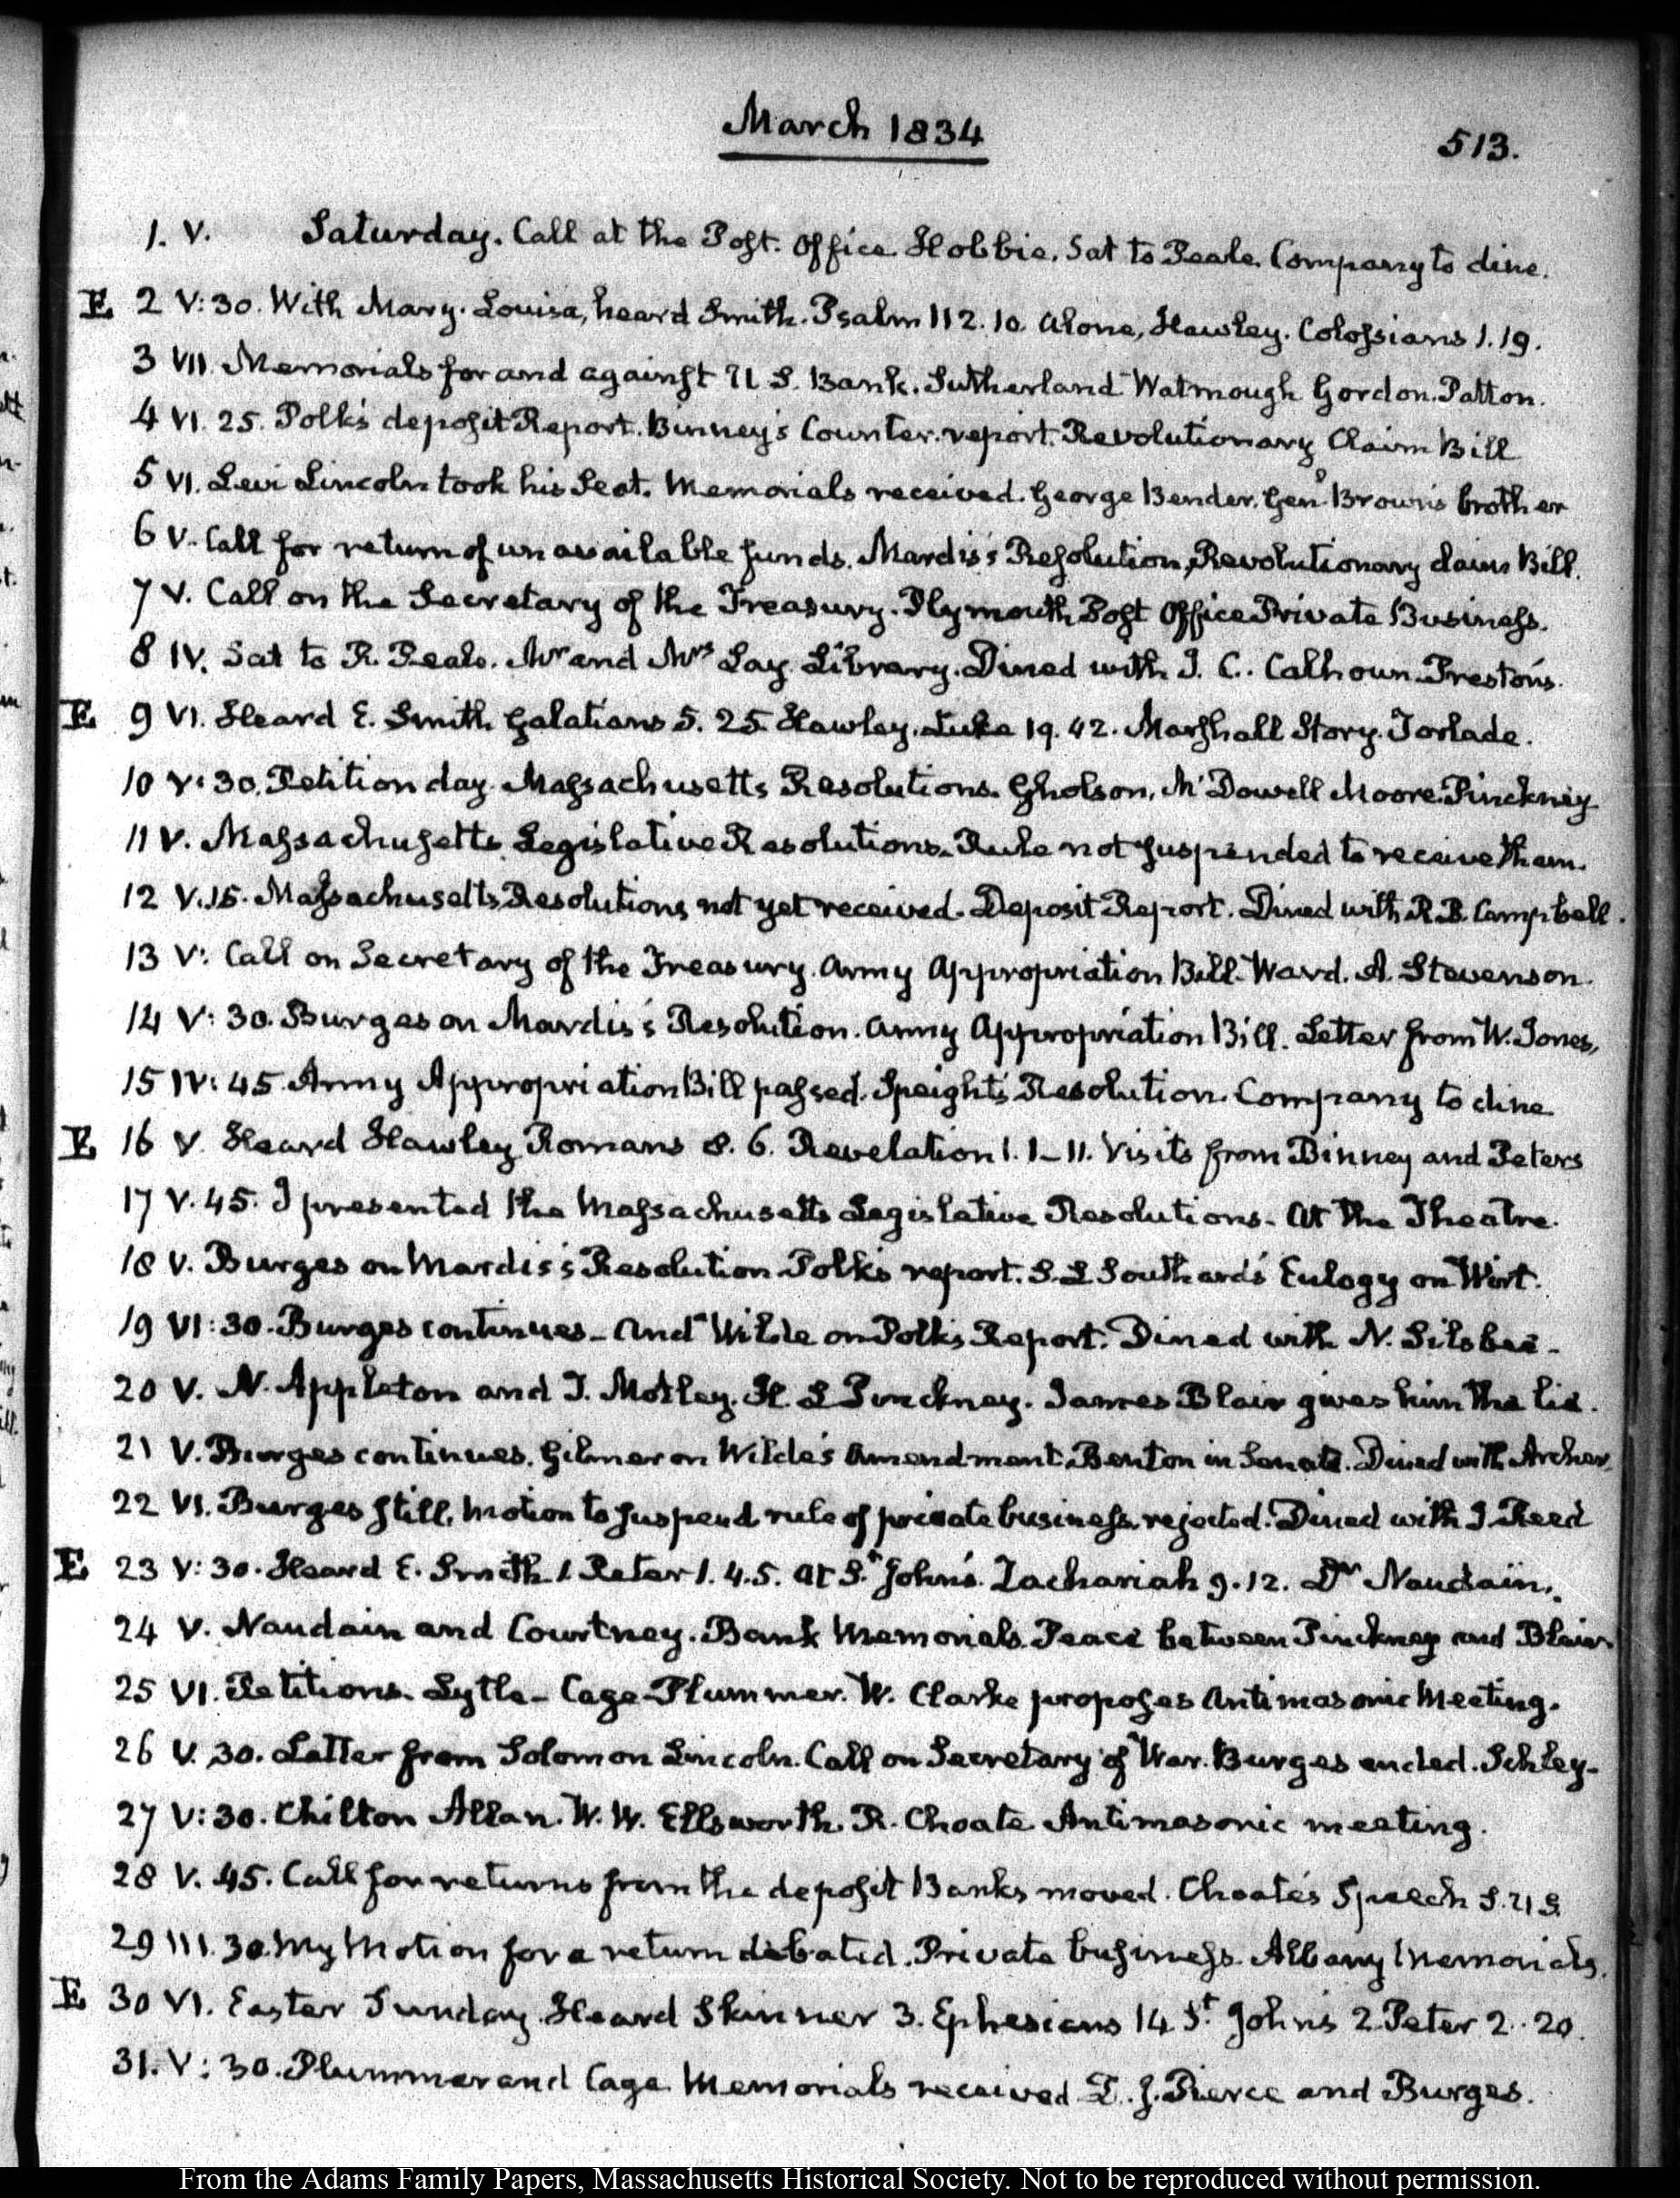 March 1834
513.
1. V. Saturday. Call at the Post. Office Hobbie. Sat to Peale. Company to dine.
E 2 V: 30. With Mary. Louisa, heard Smith. Psalm 112. 10. Alone, Hawley. Colossians 1. 19.
3 VII. Memorials for and against U S. Bank. Sutherland Watmough Gordon. Patton.
4 VI. 25. Polk's deposit Report. Binney's Counter. report. Revolutionary Claim Bill
5 VI. Levi Lincoln took his Seat. Memorials received. George Bender. Genl. Brown's brother
6 V. Call for return of unavailable funds. Mardis's Resolution, Revolutionary claim Bill.
7 V. Call on the Secretary of the Treasury. Plymouth Post Office Private Business.
8 IV. Sat to R. Peale. Mr and Mrs Lay. Library. Dined with J. C. Calhoun. Preston's.
E 9 VI. Heard E. Smith Galatians 5. 25. Hawley. Luke 19. 42. Marshall Story. Torlade.
10 V: 30. Petition day. Massachusetts Resolutions. Gholson, McDowell Moore. Pinckney
11 V. Massachusetts Legislative Resolutions. Rule not suspended to receive them.
12 V. 15. Massachusetts Resolutions not yet received. Deposit Report. Dined with R. B. Campbell.
13 V: Call on Secretary of the Treasury. Army Appropriation Bill. Ward. A. Stevenson.
14 V: 30. Burges on Mardis's Resolution. Army Appropriation Bill. Letter from W. Jones,
15 IV: 45. Army Appropriation Bill passed. Speight's Resolution. Company to dine
E 16 V. Heard Hawley Romans 8. 6. Revelation 1. 1-11. Visits from Binney and Peters
17 V. 45. I presented the Massachusetts Legislative Resolutions. At the Theatre.
18 V. Burges on Mardis's Resolution Polk's report. S. L Southard's Eulogy on Wirt.
19 VI: 30. Burges continues - And Wilde on Polk's Report. Dined with N. Silsbee -
20 V. N. Appleton and T. Motley. H. L Pinckney. James Blair gives him the lie.
21 V. Burges continues. Gilmer on Wilde's Amendment. Benton in Senate. Dined with Archer.
22 VI. Burges still. Motion to suspend rule of private business rejected. Dined with J Reed
E 23 V: 30. Heard E. Smith 1. Peter 1. 4. 5. At St. John's. Zachariah 9. 12. Dr Naudain.
24 V. Naudain and Courtney. Bank Memorials. Peace between Pinckney and Blair
25 VI. Petitions. Lytle - Cage - Plummer. W. Clarke proposes Antimasonic Meeting.
26 V. 30. Letter from Solomon Lincoln. Call on Secretary of War. Burges ended. Schley.
27 V: 30. Chilton Allan. W. W. Ellsworth. R. Choate Antimasonic meeting.
28 V. 45. Call for returns from the deposit Banks moved. Choate's Speech S. U S.
29 III. 30. My Motion for a return debated. Private business. Albany Memorials.
E 30 VI. Easter Sunday. Heard Skinner 3. Ephesians 14 St. John's 2 Peter 2. 20.
31. V: 30. Plummer and Cage Memorials received D. J. Pierce and Burges.
From the Adams Family Papers, Massachusetts Historical Society. Not to be reproduced without permission.